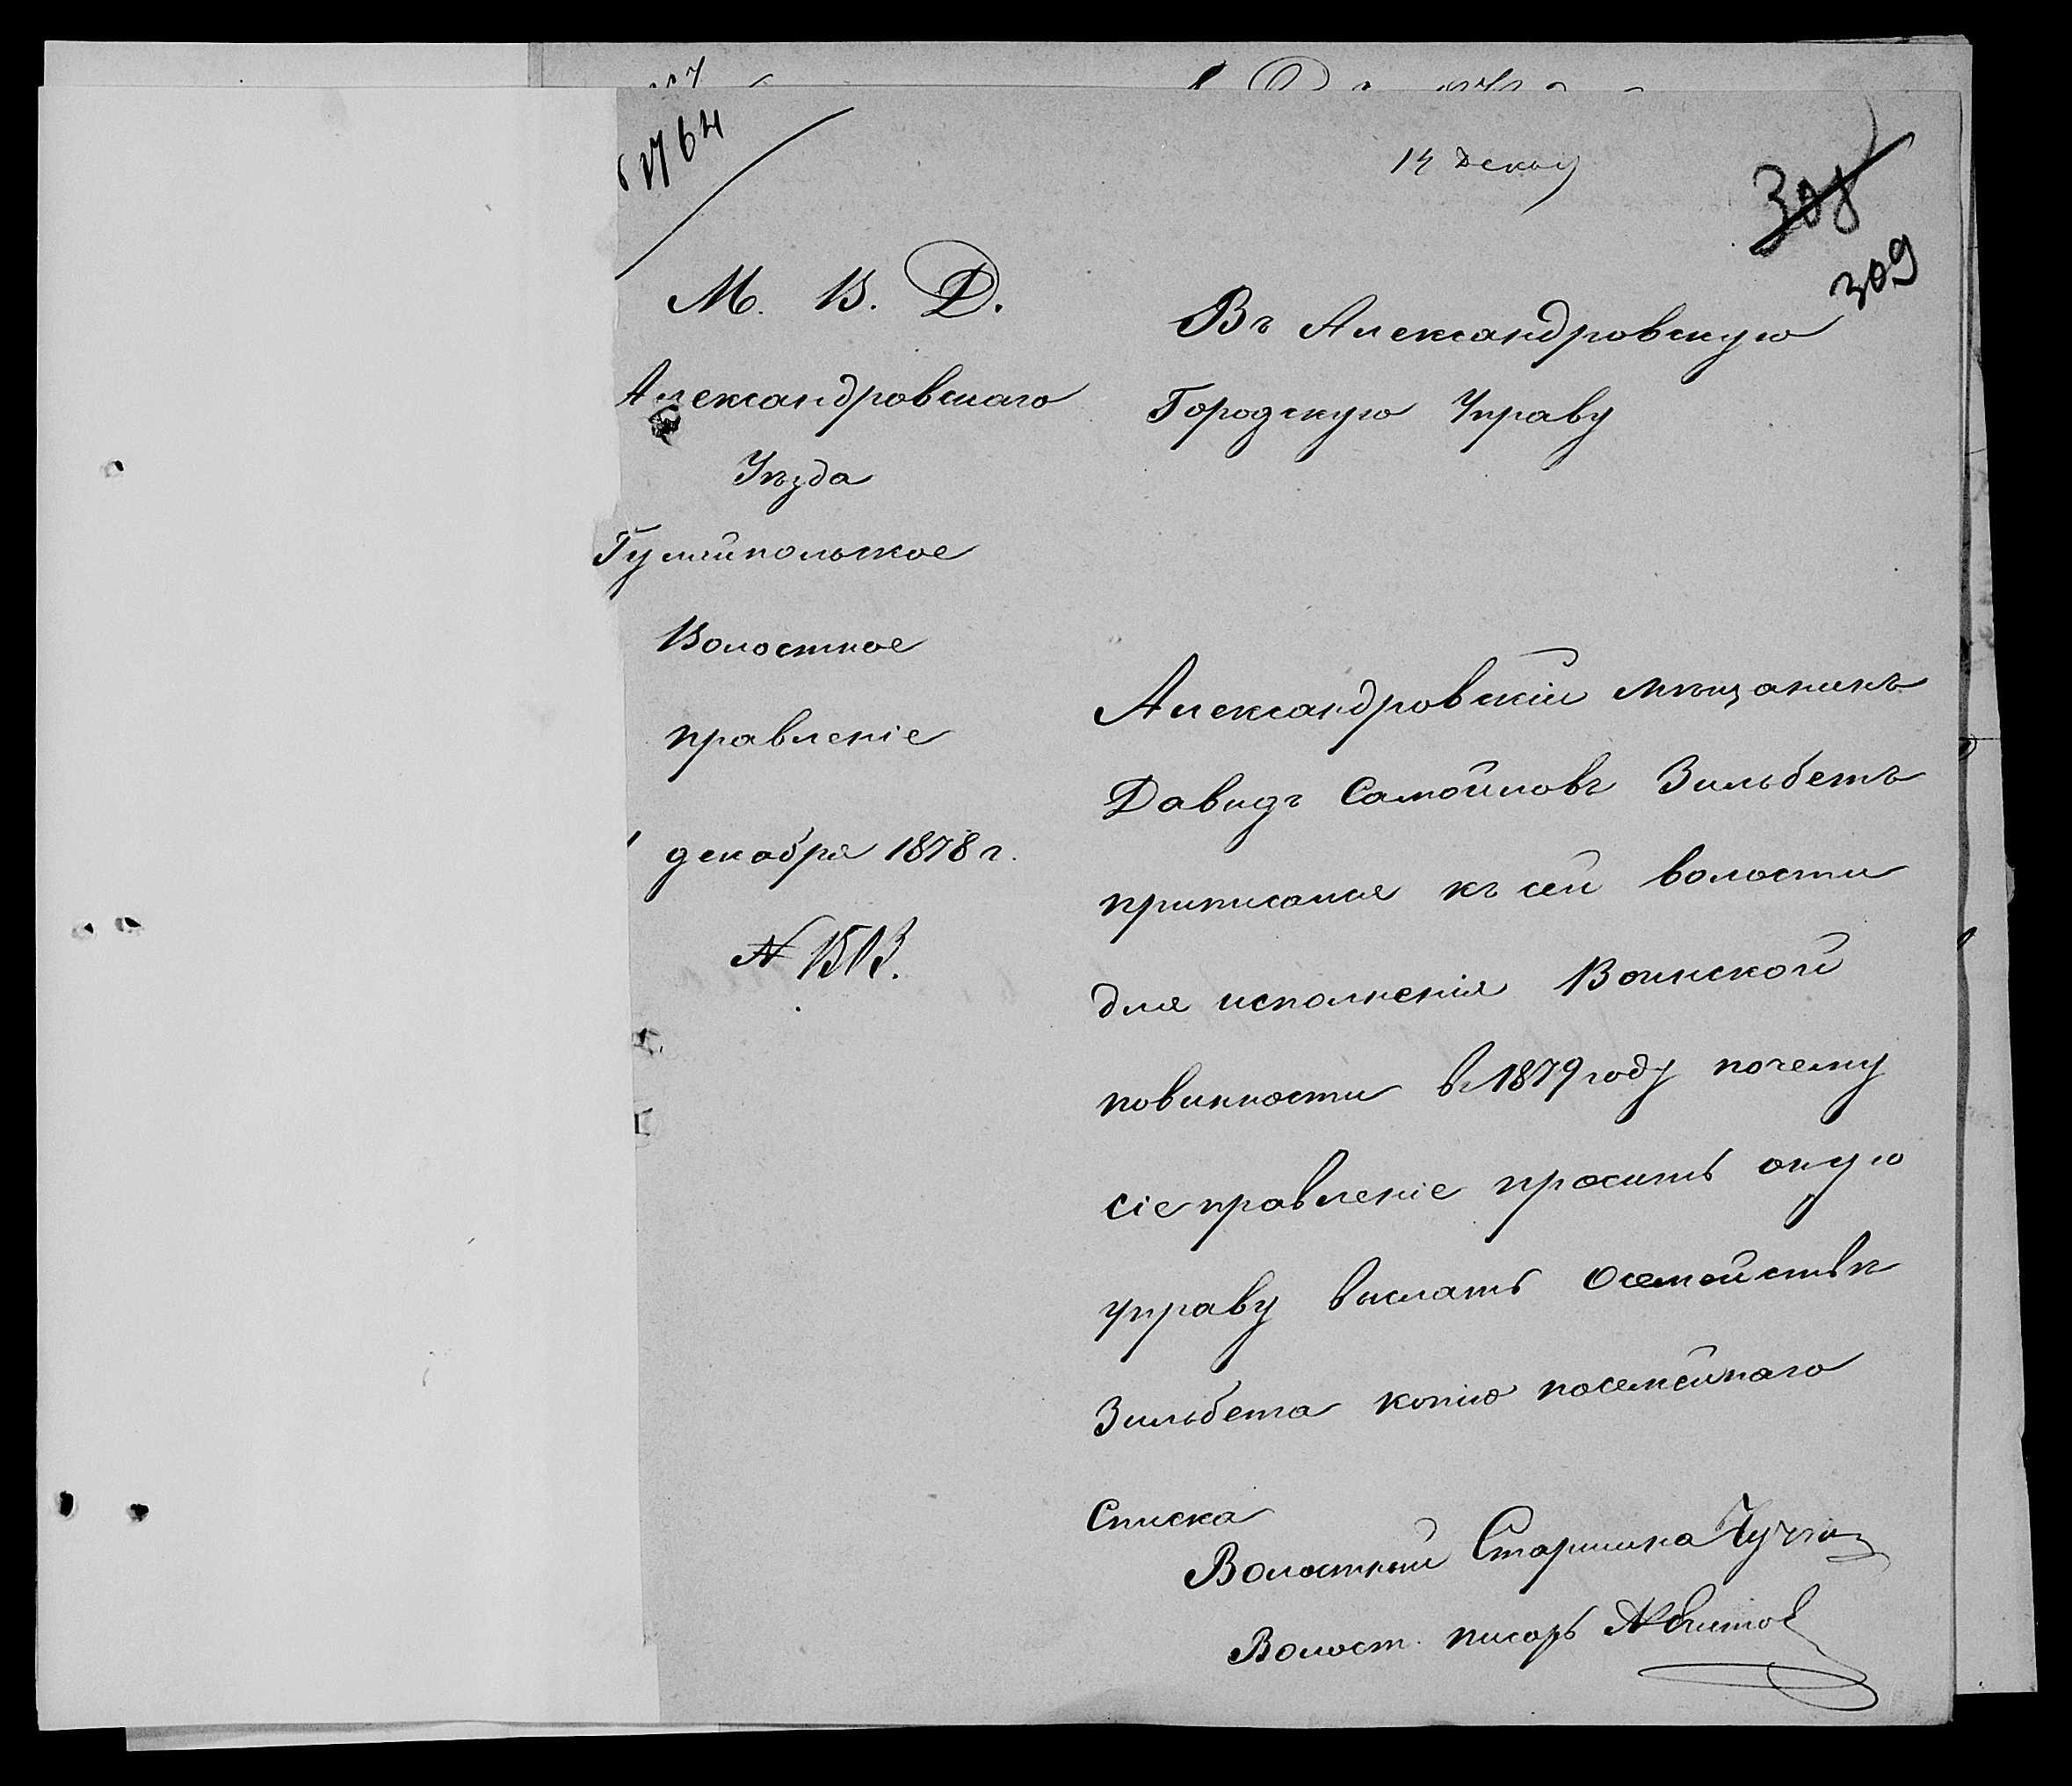 1764
14 декаб
308
309
М. В. Д.
Александровскаго
Уѣзда
Гуляйпольское
Волостное
правленіе
декабря 1878 г.
№ 1513.
Въ Александровскую
Городскую Управу
Александровскій мѣщанинъ
Давидъ Самойловъ Зильбетъ
приписался къ сей волости
для исполненія Воинской
повинности въ 1879 году почему
сіе правленіе проситъ оную
управу выслать о семействѣ
Зильбета копію посемейнаго
Списка
Волостный Старшина
Волост. писарь